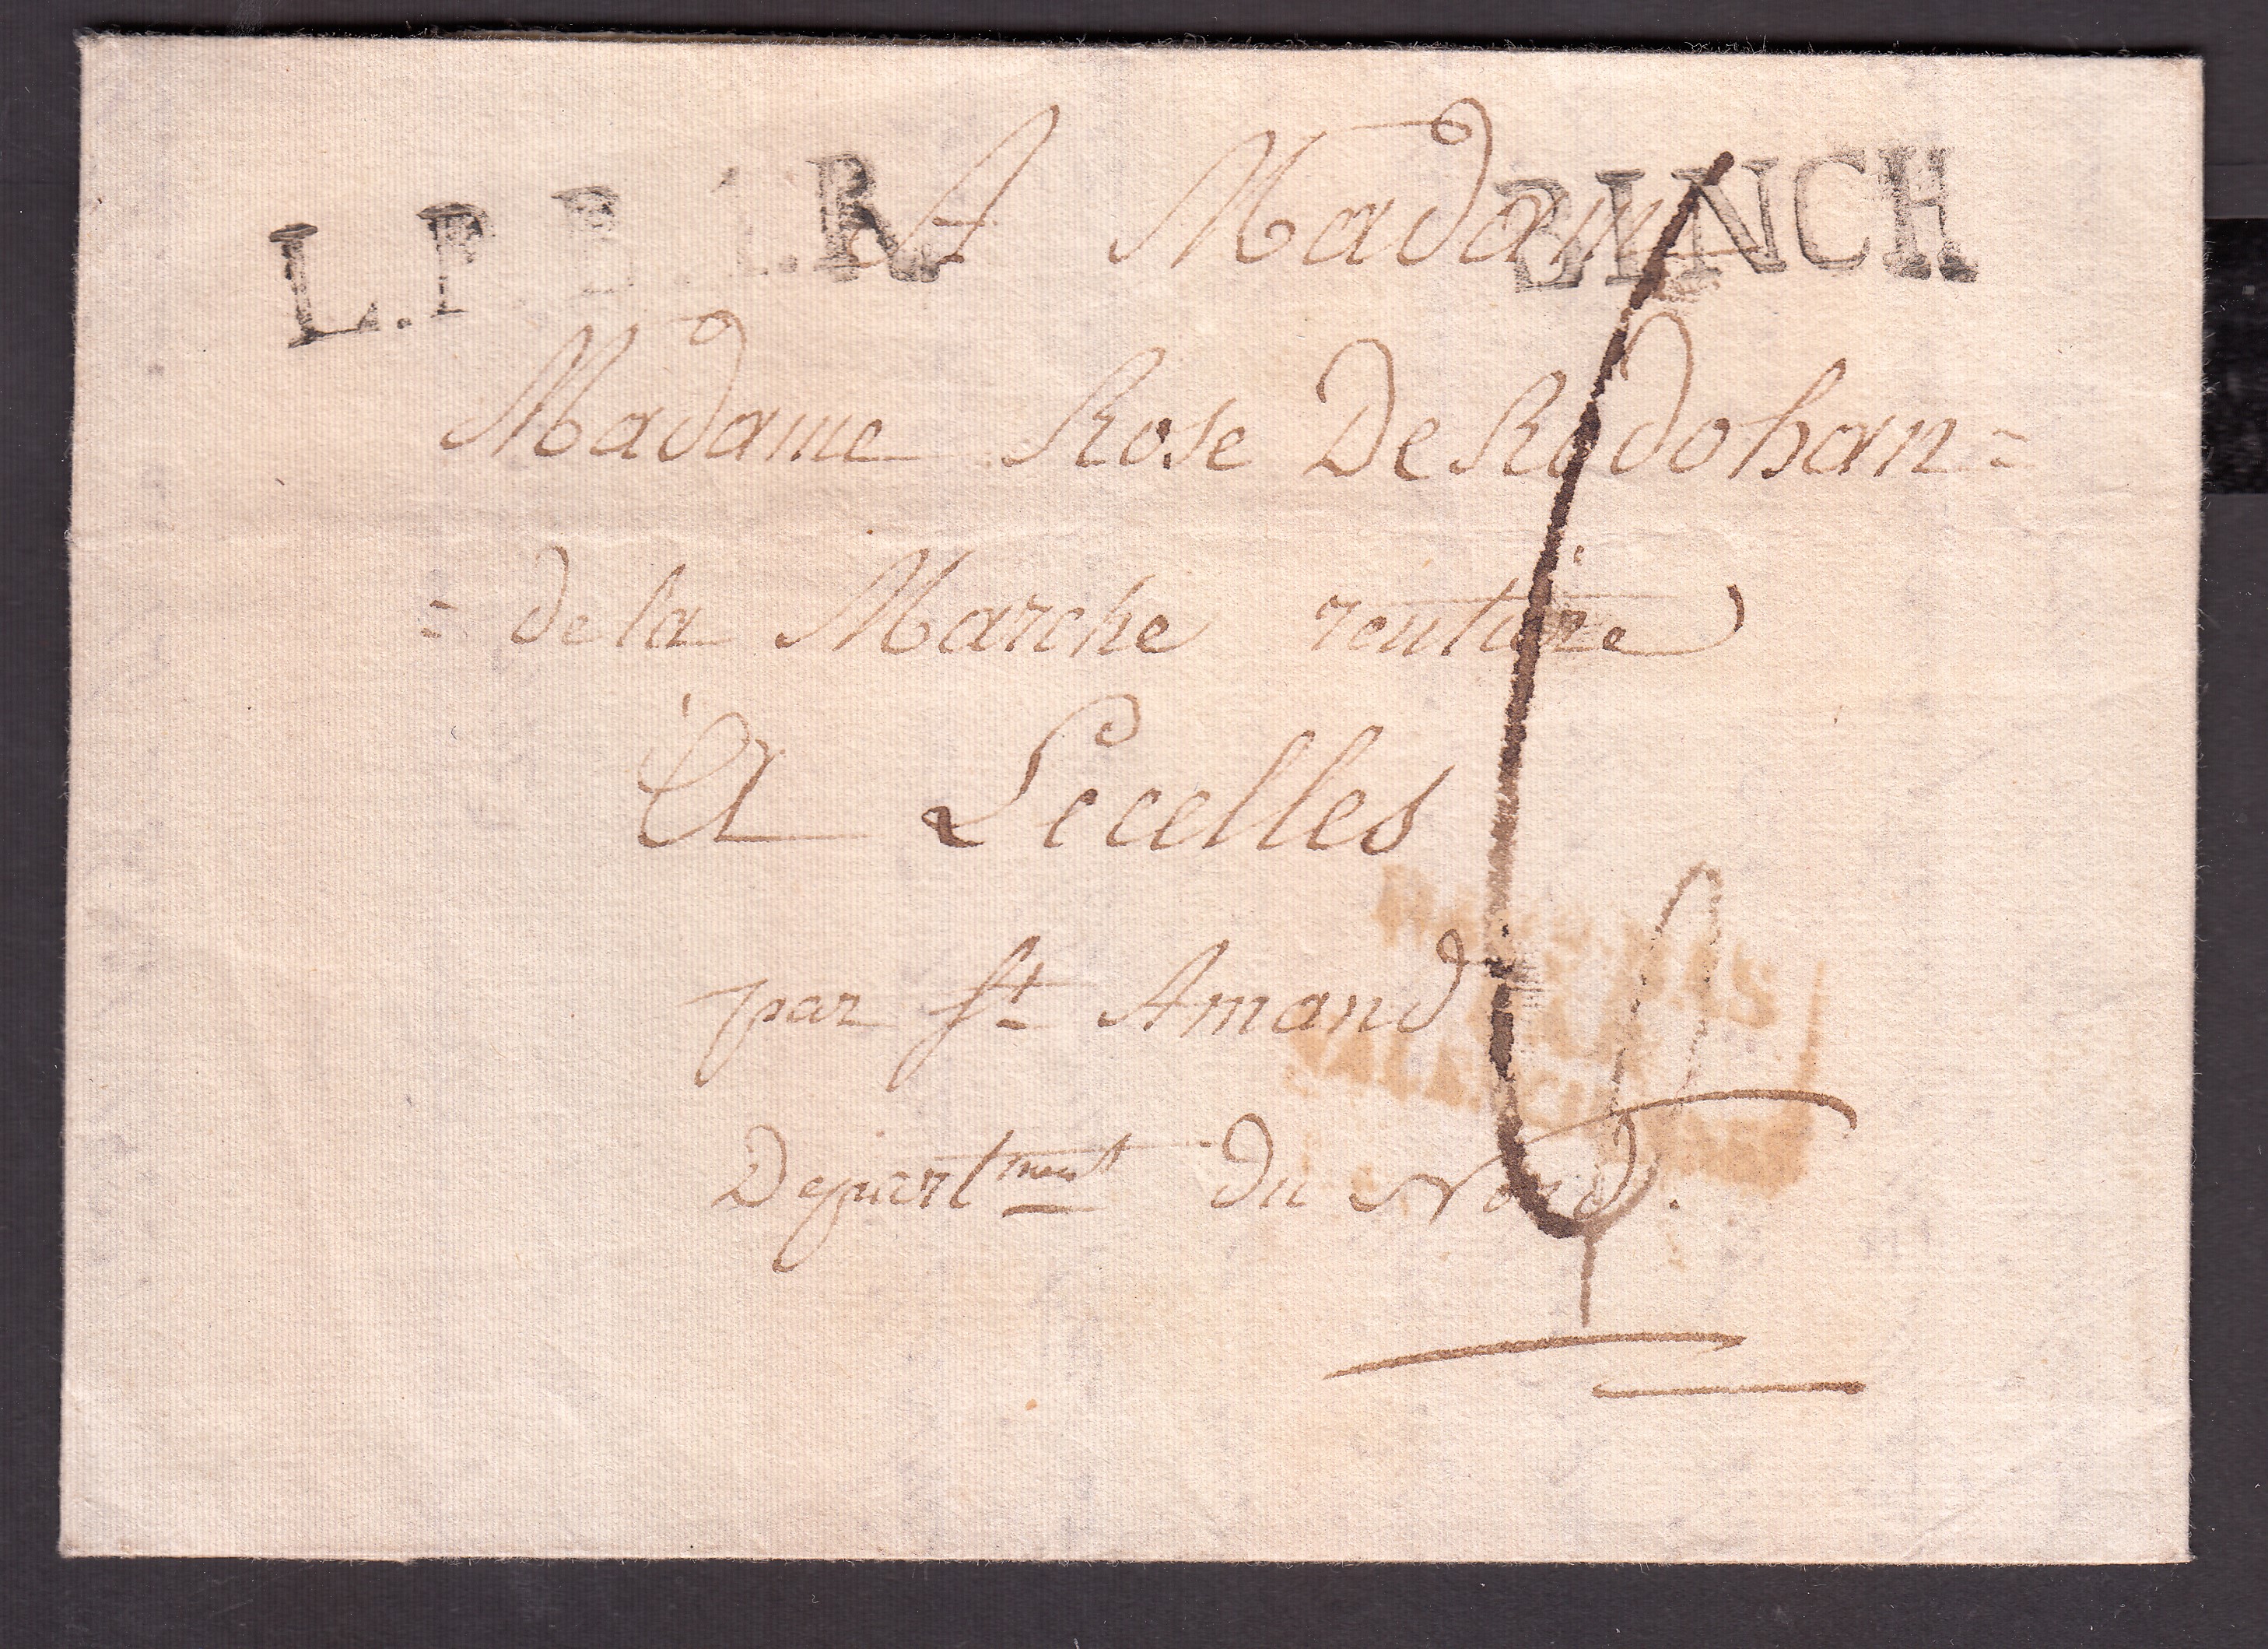 L.P.B.1.R.
BINCH
A Madame
Madame Rose De Rodohan=
= de la Marche rentière
A Lecelles
par St Amand
Department du Nord.
PAYS-BAS
PAR
VALENCIENNES